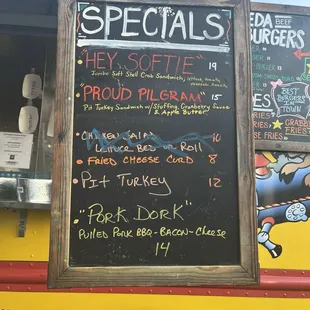 SPECIALS
"HEY, SOFTIE" 19
Jumbo Soft Shell Crab Sandwich, lettuce, tomato,
"PROUD PILGRAM" 15
Pit Turkey Sandwich w/Stuffing, Cranberry Sauce
& Apple Butter
CHICKEN SALAD 10
LETTUCE BED OR ROLL
FRIED CHEESE CURD 8
PIT TURKEY 12
"PORK DORK"
PULLED PORK BBQ - BACON - CHEESE
14
BEEF
BURGERS
BEST
BURGERS
IN
TOWN
FRIES
CRAB
FRIES